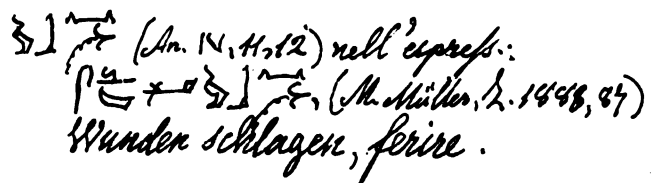 (An. IV, 11, 12) nell'espress.:
(M. Müller, Z. 1888, 87)
Wunden schlagen, ferire.